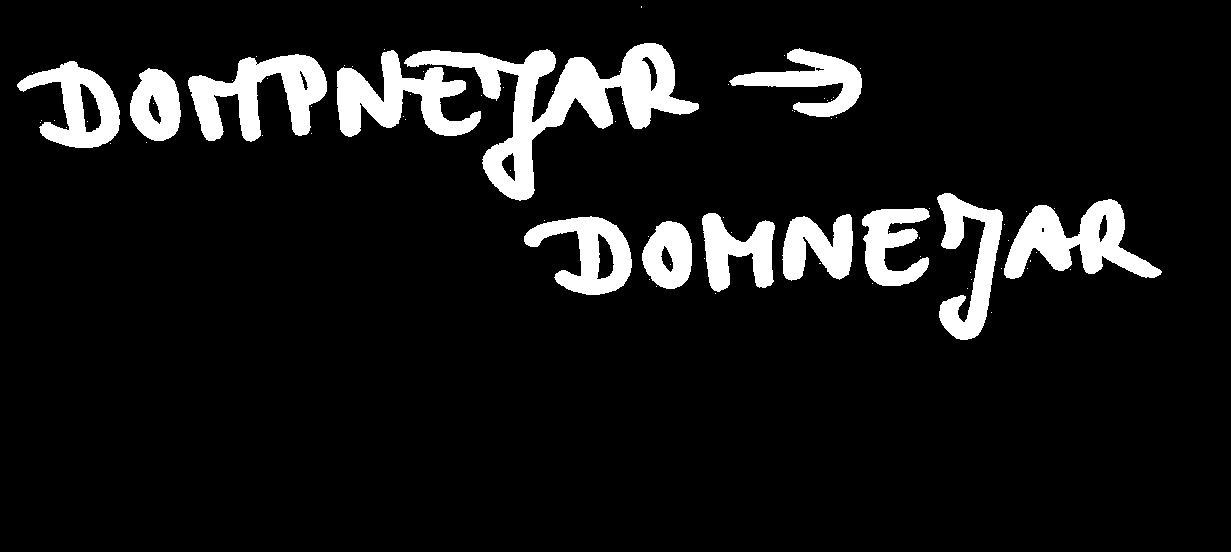 DOMPNEJAR →
DOMNEJAR